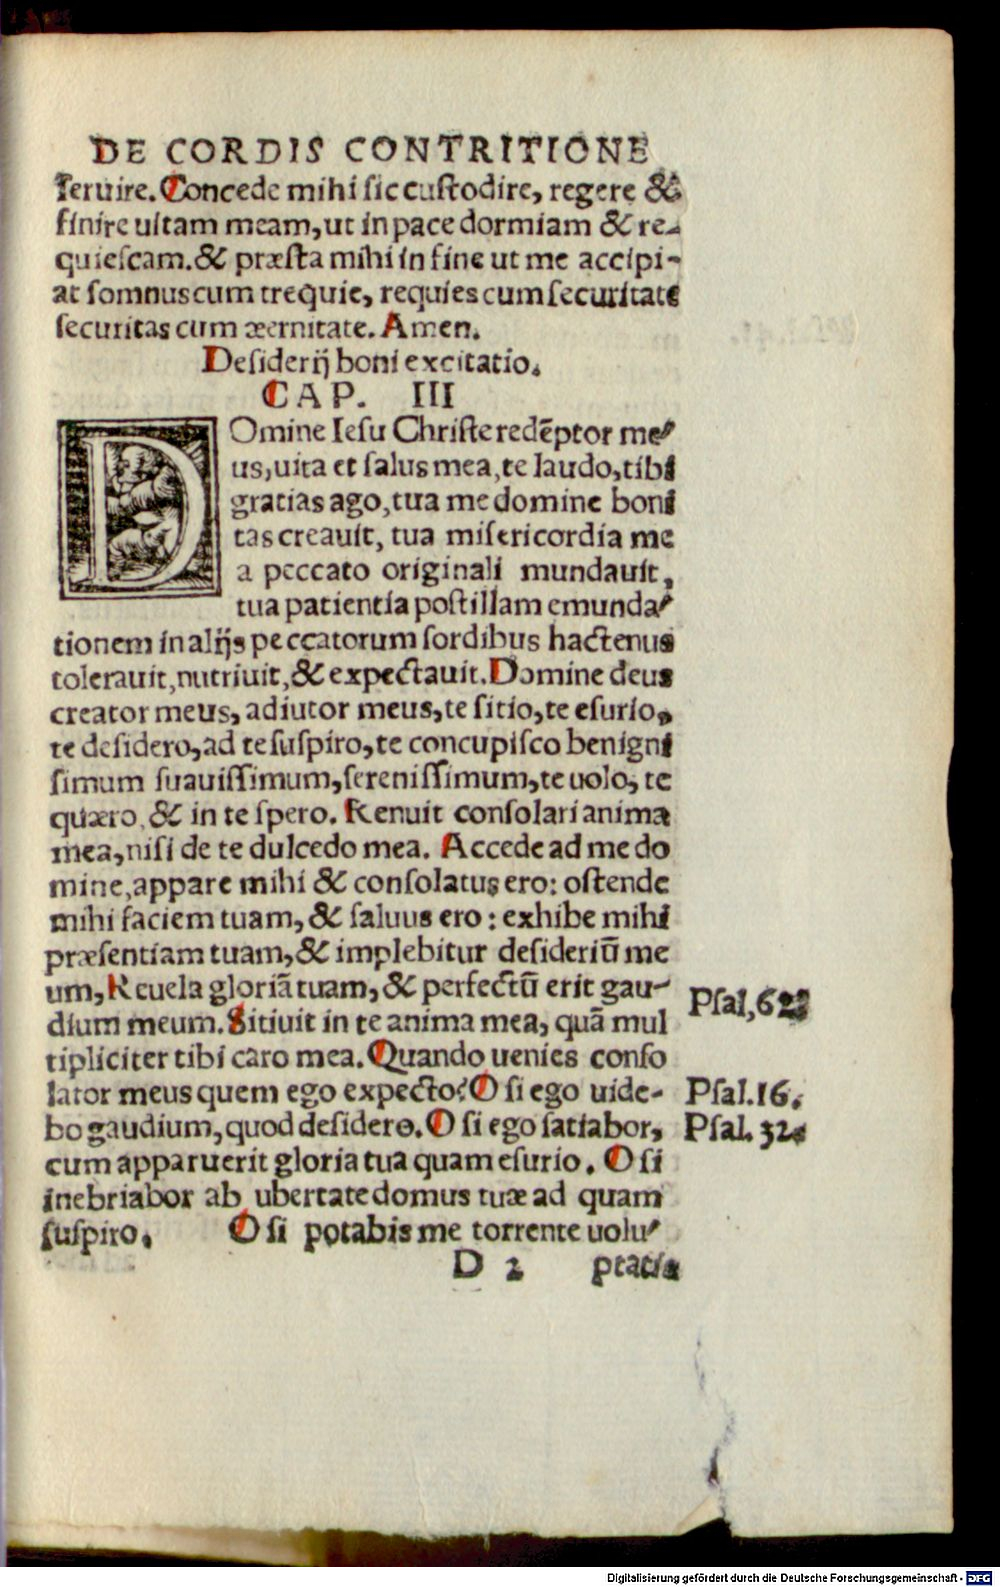 DE CORDIS CONTRITIONE
ſeruire. Concede mihi ſic cuſtodire, regere &
finire uitam meam, ut in pace dormiam & re-
quieſcam. & præſta mihi in fine ut me accipi-
at ſomnus cum requie, requies cum ſecuritate
ſecuritas cum æernitate. Amen.
Deſiderij boni excitatio.
CAP. III
DOmine Ieſu Chriſte redēptor me-
us, uita et ſalus mea, te laudo, tibi
gratias ago, tua me domine boni
tas creauit, tua miſericordia me
a peccato originali mundauit,
tua patientia poſt illam emunda-
tionem in alijs peccatorum ſordibus hactenus
tolerauit, nutriuit, & expectauit. Domine deus
creator meus, adiutor meus, te ſitio, te eſurio,
te deſidero, ad te ſuſpiro, te concupiſco benigni
ſimum ſuauiſſimum, ſereniſſimum, te uolo, te
quæro, & in te ſpero. Renuit conſolari anima
mea, niſi de te dulcedo mea. Accede ad me do
mine, appare mihi & conſolatus ero: oſtende
mihi faciem tuam, & ſaluus ero: exhibe mihi
præſentiam tuam, & implebitur deſideriū me
um, Reuela gloriā tuam, & perfectū erit gau-
dium meum. Sitiuit in te anima mea, quā mul
tipliciter tibi caro mea. Quando uenies conſo
lator meus quem ego expecto? O ſi ego uide-
bo gaudium, quod deſidero. O ſi ego ſatiabor,
cum apparuerit gloria tua quam eſurio. O ſi
inebriabor ab ubertate domus tuæ ad quam
ſuſpiro. O ſi potabis me torrente uolu-
D 2 ptatis
Pſal, 62
Pſal. 16.
Pſal. 32.
Digitalisierung gefördert durch die Deutsche Forschungsgemeinschaft - DFG